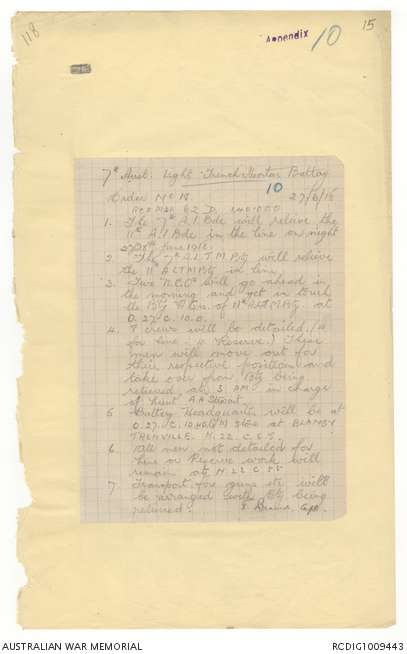 118
Appendix
10
15
7th Aust: Light Trench Mortar Battery
10
Order No 18 27/6/18
Ref Map 62 D. 1/40.000
1. The 7th A.I. Bde will relieve the
11th A.I Bde in the line on night
27/28th June 1918.
2. The 7th A.L.T.M. Bty will relieve
the 11th A L T M Bty in line.
3. Two N.C.O's will go ahead in
the morning and get in touch
the Bty of 11th A.L.T.M. Bty. at
O.27.C.10.0.
4. 8 crews will be detailed, (4
for line. 4 Reserve.) These
men will move out for
their respective positions and
take over from Bty being
relieved at 3 AM in charge
of Lieut. A A Stewart.
5. Battery Headquarters will be at
O.27.C.10. at BLANGY
TRONVILLE. N.22.C.5.5.
6. All men not detailed for
line or Reserve work will
remain at N.22.C.5.5
7. Transport for guns etc will
be arranged with Bty being
relieved.
Capt.
AUSTRALIAN WAR MEMORIAL
RCDIG1009443